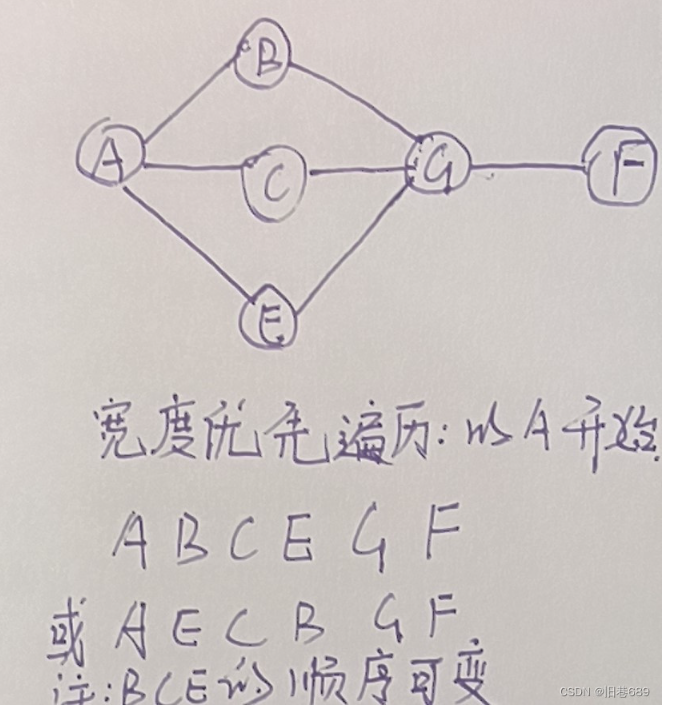 B
A
C
G
F
E
宽度优先遍历:以A开始.
A B C E G F
或 A E C B G F
注:BCE的顺序可变
CSDN @旧巷689